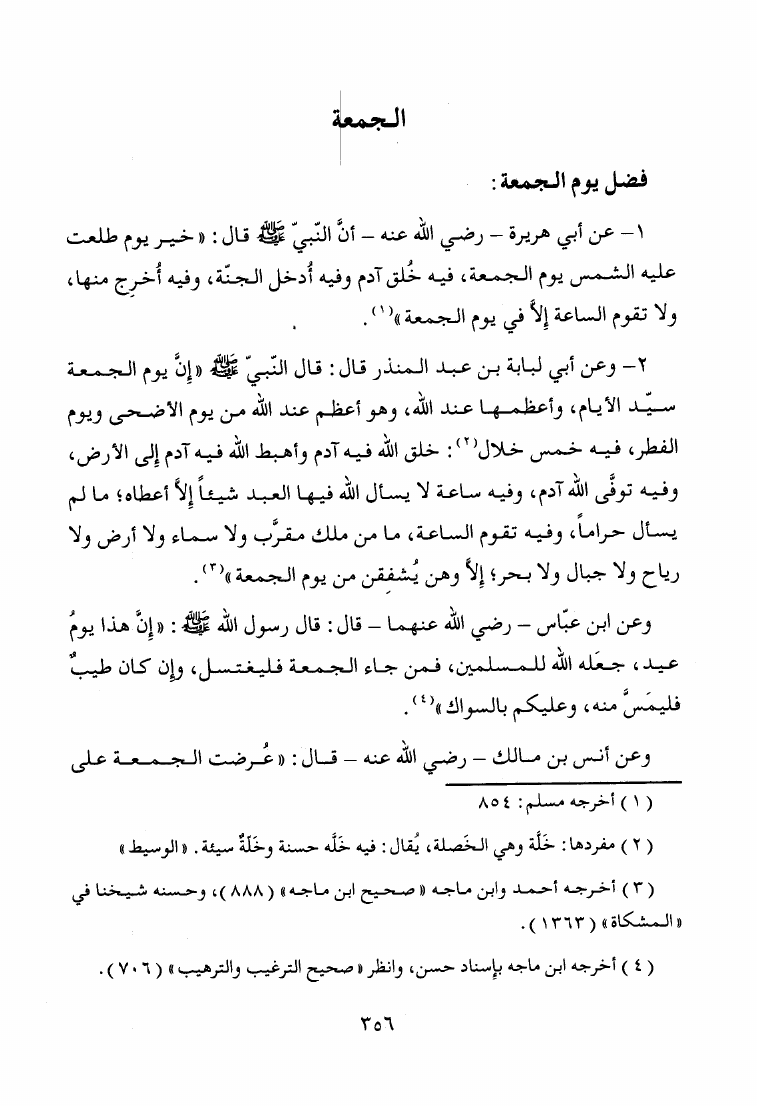 الجمعة
فضل يوم الجمعة:
١- عن أبي هريرة - رضي الله عنه - أنَّ النّبيّ ﷺ قال: «خير يوم طلعت
عليه الشمس يوم الجمعة، فيه خُلق آدم وفيه أُدخل الجنّة، وفيه أُخرِج منها،
ولا تقوم الساعة إلاَّ في يوم الجمعة»(١).
٢- وعن أبي لبابة بن عبد المنذر قال: قال النّبيّ ﷺ «إنَّ يوم الجمعة
سيّد الأيام، وأعظمها عند الله، وهو أعظم عند الله من يوم الأضحى ويوم
الفطر، فيه خمس خلال(٢): خلق الله فيه آدم وأهبط الله فيه آدم إلى الأرض،
وفيه توفَّى الله آدم، وفيه ساعة لا يسأل الله فيها العبد شيئاً إلاَّ أعطاه؛ ما لم
يسأل حراماً، وفيه تقوم الساعة، ما من ملك مقرَّب ولا سماء ولا أرض ولا
رياح ولا جبال ولا بحر؛ إلاَّ وهن يُشفِقن من يوم الجمعة»(٣).
وعن ابن عبّاس - رضي الله عنهما - قال: قال رسول الله ﷺ: «إنَّ هذا يومُ
عيد، جعَله الله للمسلمين، فمن جاء الجمعة فليغتسل، وإن كان طيبٌ
فليمَسَّ منه، وعليكم بالسواك»(٤).
وعن أنس بن مالك - رضي الله عنه - قال: «عُرضت الجمعة على
(١) أخرجه مسلم: ٨٥٤
(٢) مفردها: خَلَّة وهي الخَصلة، يُقال: فيه خَلَّه حسنة وخَلّةٌ سيئة. «الوسيط»
(٣) أخرجه أحمد وابن ماجه «صحيح ابن ماجه» (٨٨٨)، وحسنه شيخنا في
«المشكاة» (١٣٦٣).
(٤) أخرجه ابن ماجه بإسناد حسن، وانظر «صحيح الترغيب والترهيب» (٧٠٦).
٣٥٦